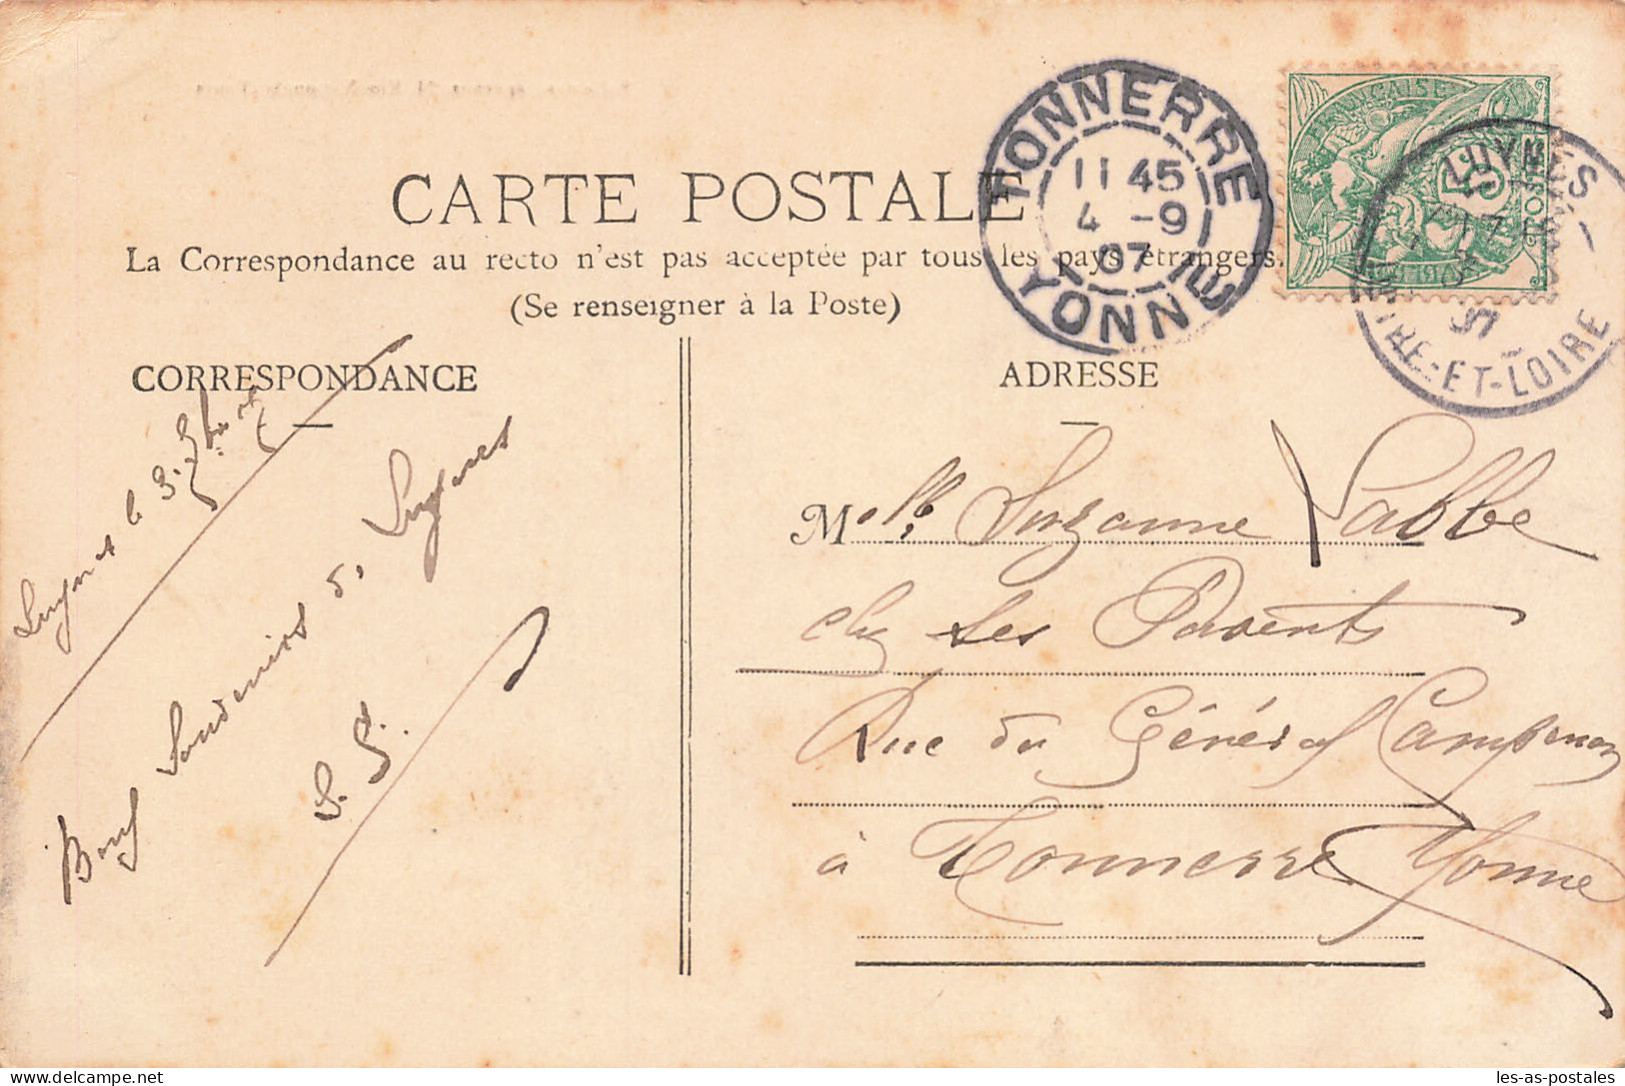 CARTE POSTALE
La Correspondance au recto n'est pas acceptée par tous les pays étrangers.
(Se renseigner à la Poste)
CORRESPONDANCE
ADRESSE
TONNERRE
11 45
4 -9
07
YONNE
FRANÇAISE
5
POSTES
LUYNES
07
INDRE-ET-LOIRE
Luynes le 3. 7bre 07
Bons Souvenirs de Luynes
Melle Suzanne Labbe
chez ses Parents
Rue du Général Campenon
à Tonnerre Yonne
les-as-postales